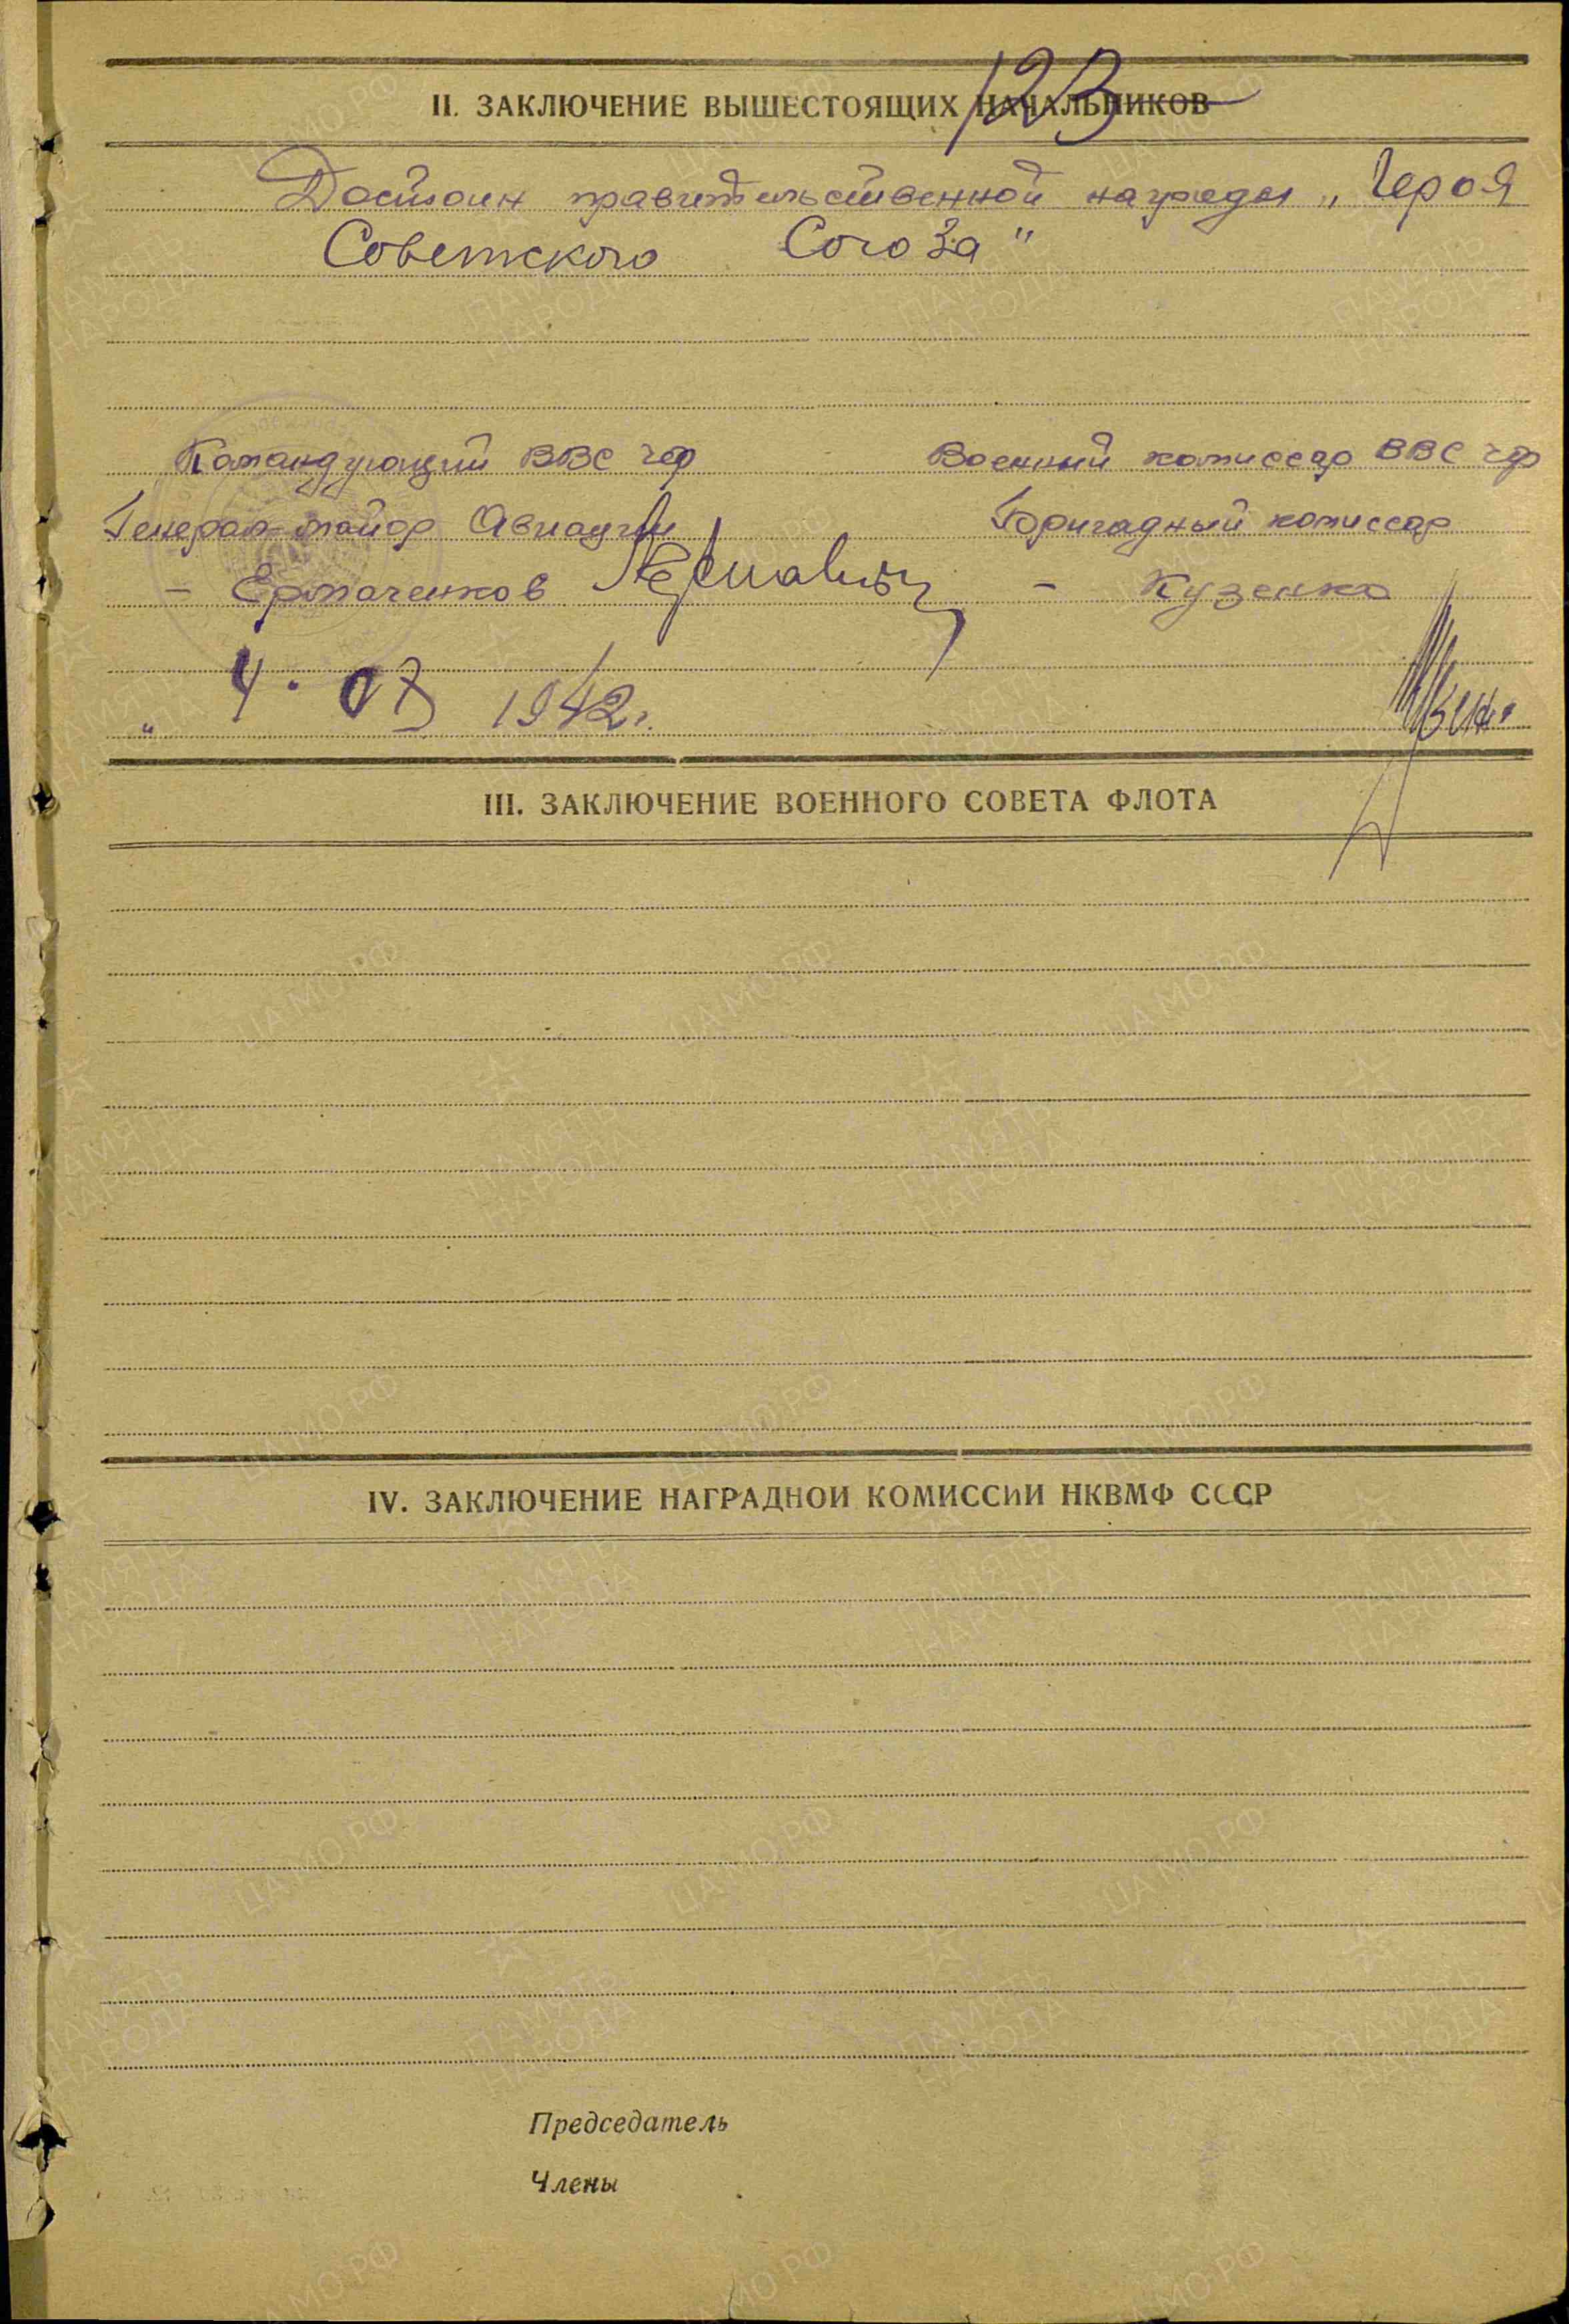 123
II. ЗАКЛЮЧЕНИЕ ВЫШЕСТОЯЩИХ НАЧАЛЬНИКОВ
Достоин правительственной награды „Героя
Советского Союза"
Командующий ВВС ЧФ Военный комиссар ВВС ЧФ
Генерал-майор Авиации Бригадный комиссар
– Ермаченков – Кузенко
„ 4 . 07 1942г.
III. ЗАКЛЮЧЕНИЕ ВОЕННОГО СОВЕТА ФЛОТА
IV. ЗАКЛЮЧЕНИЕ НАГРАДНОЙ КОМИССИИ НКВМФ СССР
Председатель
Члены
ЦАМО.РФ
ПАМЯТЬ
НАРОДА